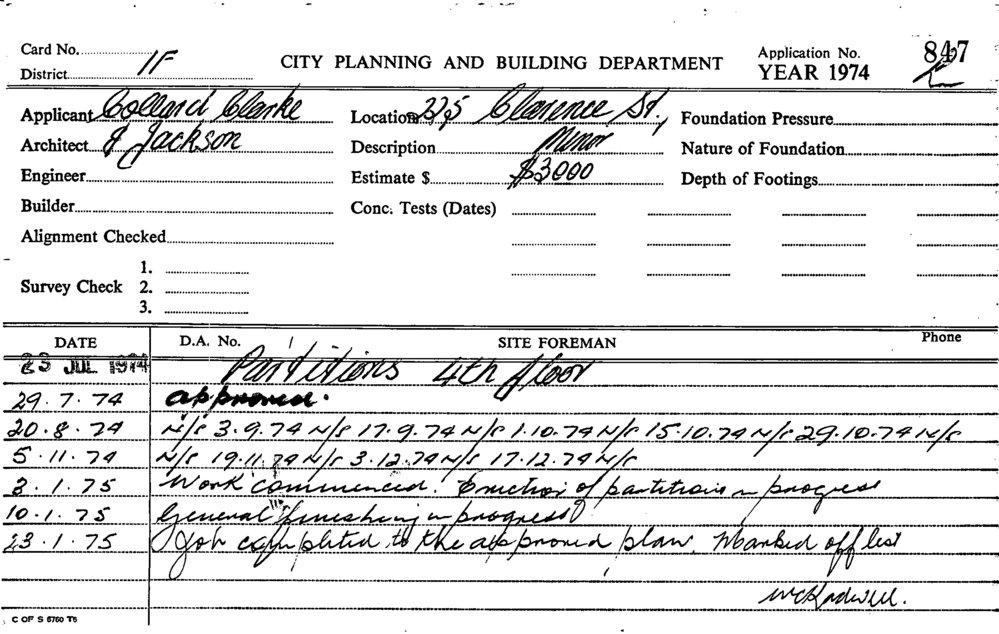 Card No.
District 1F
CITY PLANNING AND BUILDING DEPARTMENT
Application No. 847
YEAR 1974
Applicant Collard Clarke
Architect & Jackson
Engineer
Builder
Alignment Checked
Survey Check 1.
2.
3.
Location 225 Clarence St,
Description Minor
Estimate $ $3000
Conc. Tests (Dates)
Foundation Pressure
Nature of Foundation
Depth of Footings
DATE D.A. No. SITE FOREMAN Phone
23 JUL 1974 Partitions 4th floor
29.7.74 approved.
20.8.74 N/S 3.9.74 N/S 17.9.74 N/S 1.10.74 N/S 15.10.74 N/S 29.10.74 N/S
5.11.74 N/S 19.11.74 N/S 3.12.74 N/S 17.12.74 N/S
3.1.75 Work commenced. Erection of partitions in progress
10.1.75 General finishing in progress
23.1.75 Job completed to the approved plan. Marked off list
C OF S 5760 T6